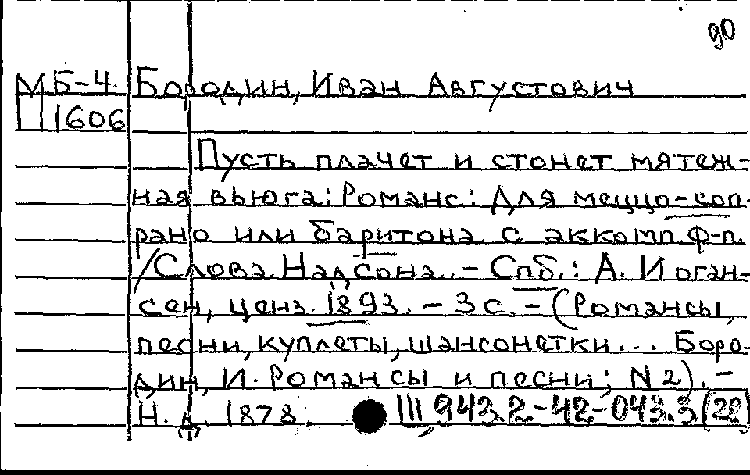 90
МБ-4 Бородин, Иван Августович
П 1606
Пусть плачет и стонет мятеж-
ная вьюга: Романс: Для меццо-соп-
рано или баритона с аккомп. ф-п.
/Слова Надсона. - Спб.: А. Иоган-
сен, ценз. 1893. - 3 с. - (Романсы,
песни, куплеты, шансонетки... Боро-
дин, И. Романсы и песни; N 2). -
Н. д. 1878. Ш 943.2-42-043.3(28)